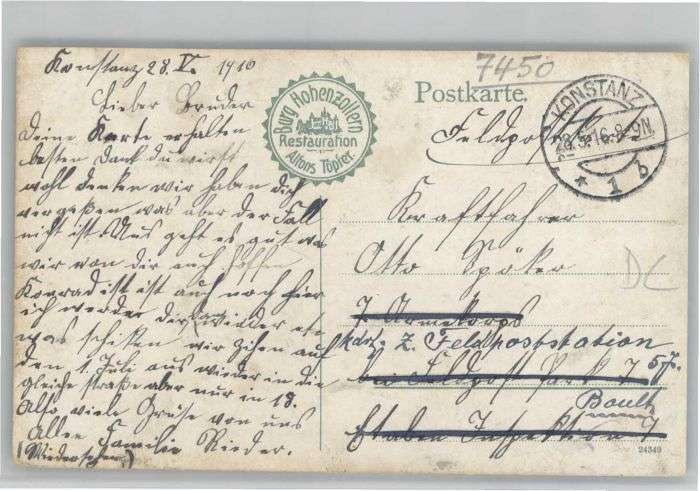 Konstanz 28. V. 1916
Lieber Bruder
Deine Karte erhalten
besten Dank du wirst
wohl denken wir haben dich
vergeßen was aber der Fall
nicht ist Uns geht es gut was
wir von dir auch hoffen
Konrad ist ist auch noch hier
ich werder dir wieder etc
was schiken wir zihen auf
den 1. Juli aus wieder in die
gleiche straße aber nur in 18.
Also viele Grüse von uns
Allen Familie Rieder.
(Wiedersehen)
Burg Hohenzollern
Restauration
Alfons Töpfer.
7450
Postkarte.
KONSTANZ
28.5.16.8-9N.
* 1 b
Feldpostk
Kraftfahrer
Otto Höker
7 Armekorps
z. Feldpoststation
57.
Feldpost Park 7
Etapen Inspektion 7
DC
24349